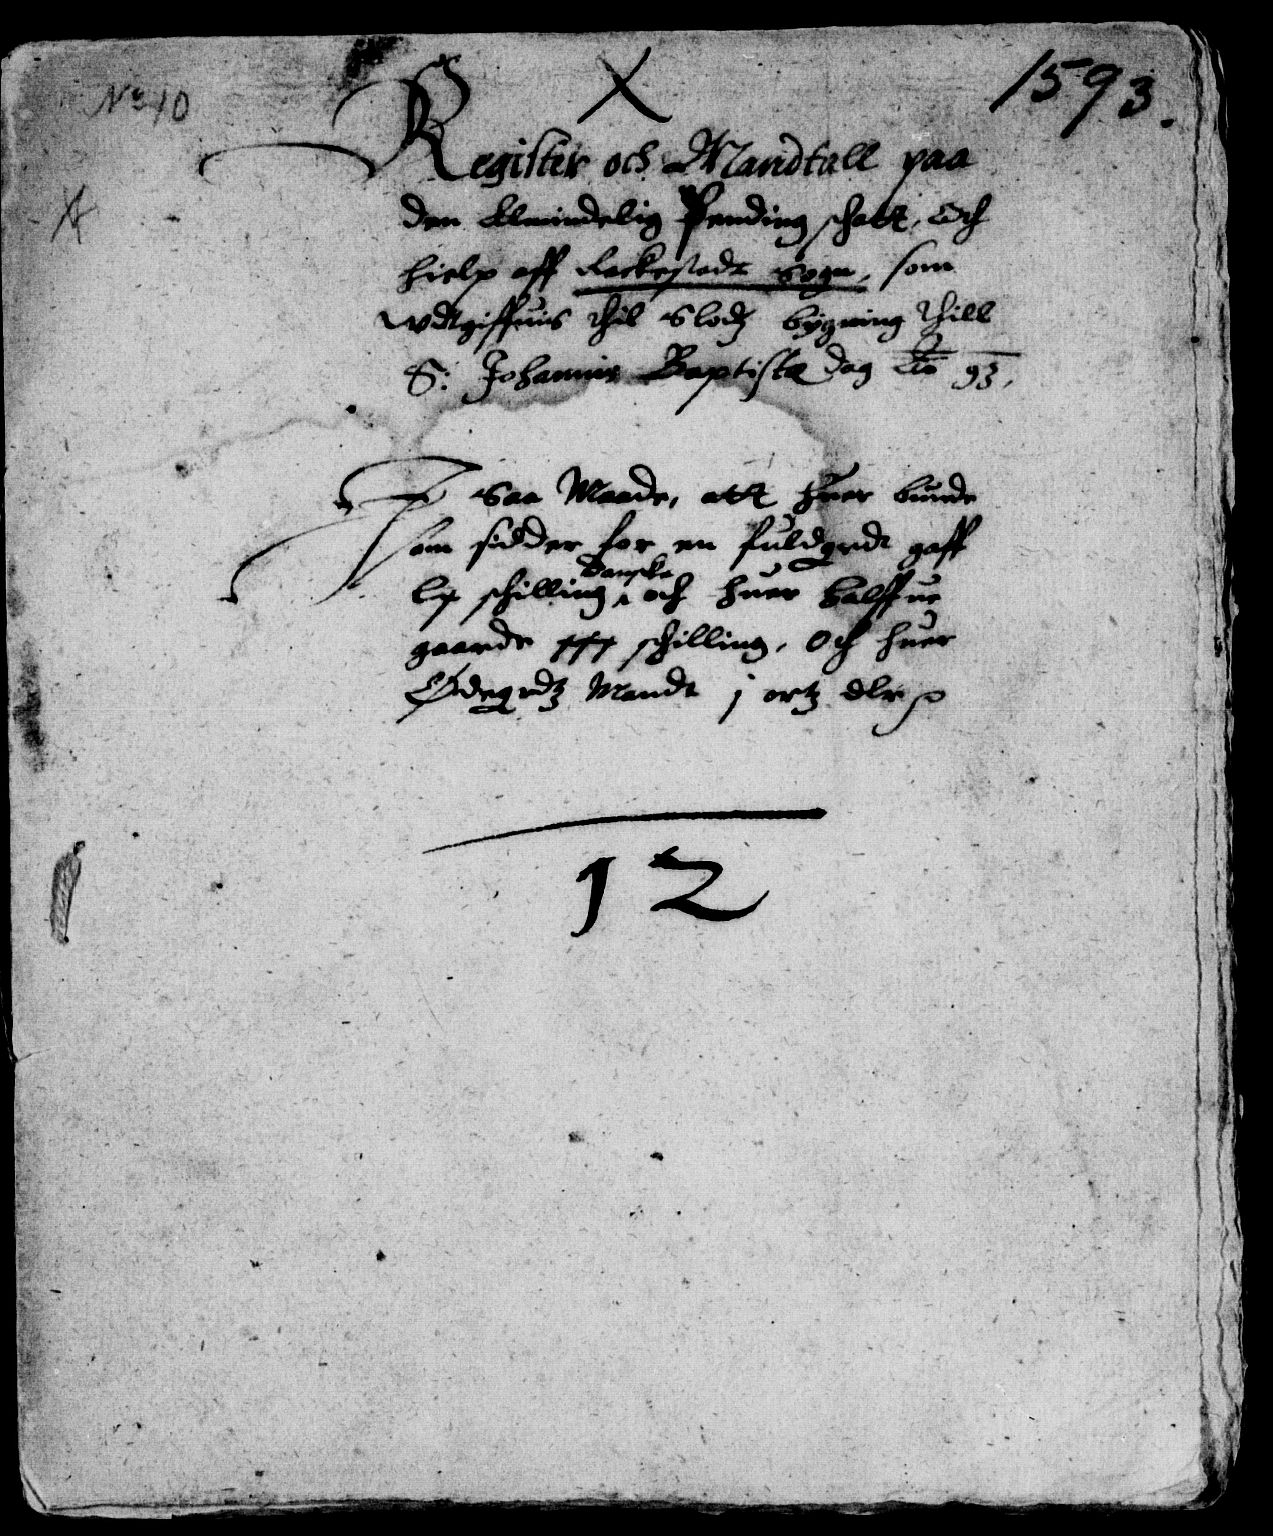 No 10
X
1593.
Register och Mandtall paa
den Almindelig Pending schatt, Och
hielp aff Rackestadt Sogn, som
wdtgiffuis thil Slodz bygning thill
S: Johannis Baptistæ dag Ao 93,
Paa saa Maade, att huer bunde
som sidder for en fuldgrdt gaff
lx schilling danske, och huer halffue
gaarde xxx schilling, Och huer
Ødegrdz Mandt j ortz dlr
12